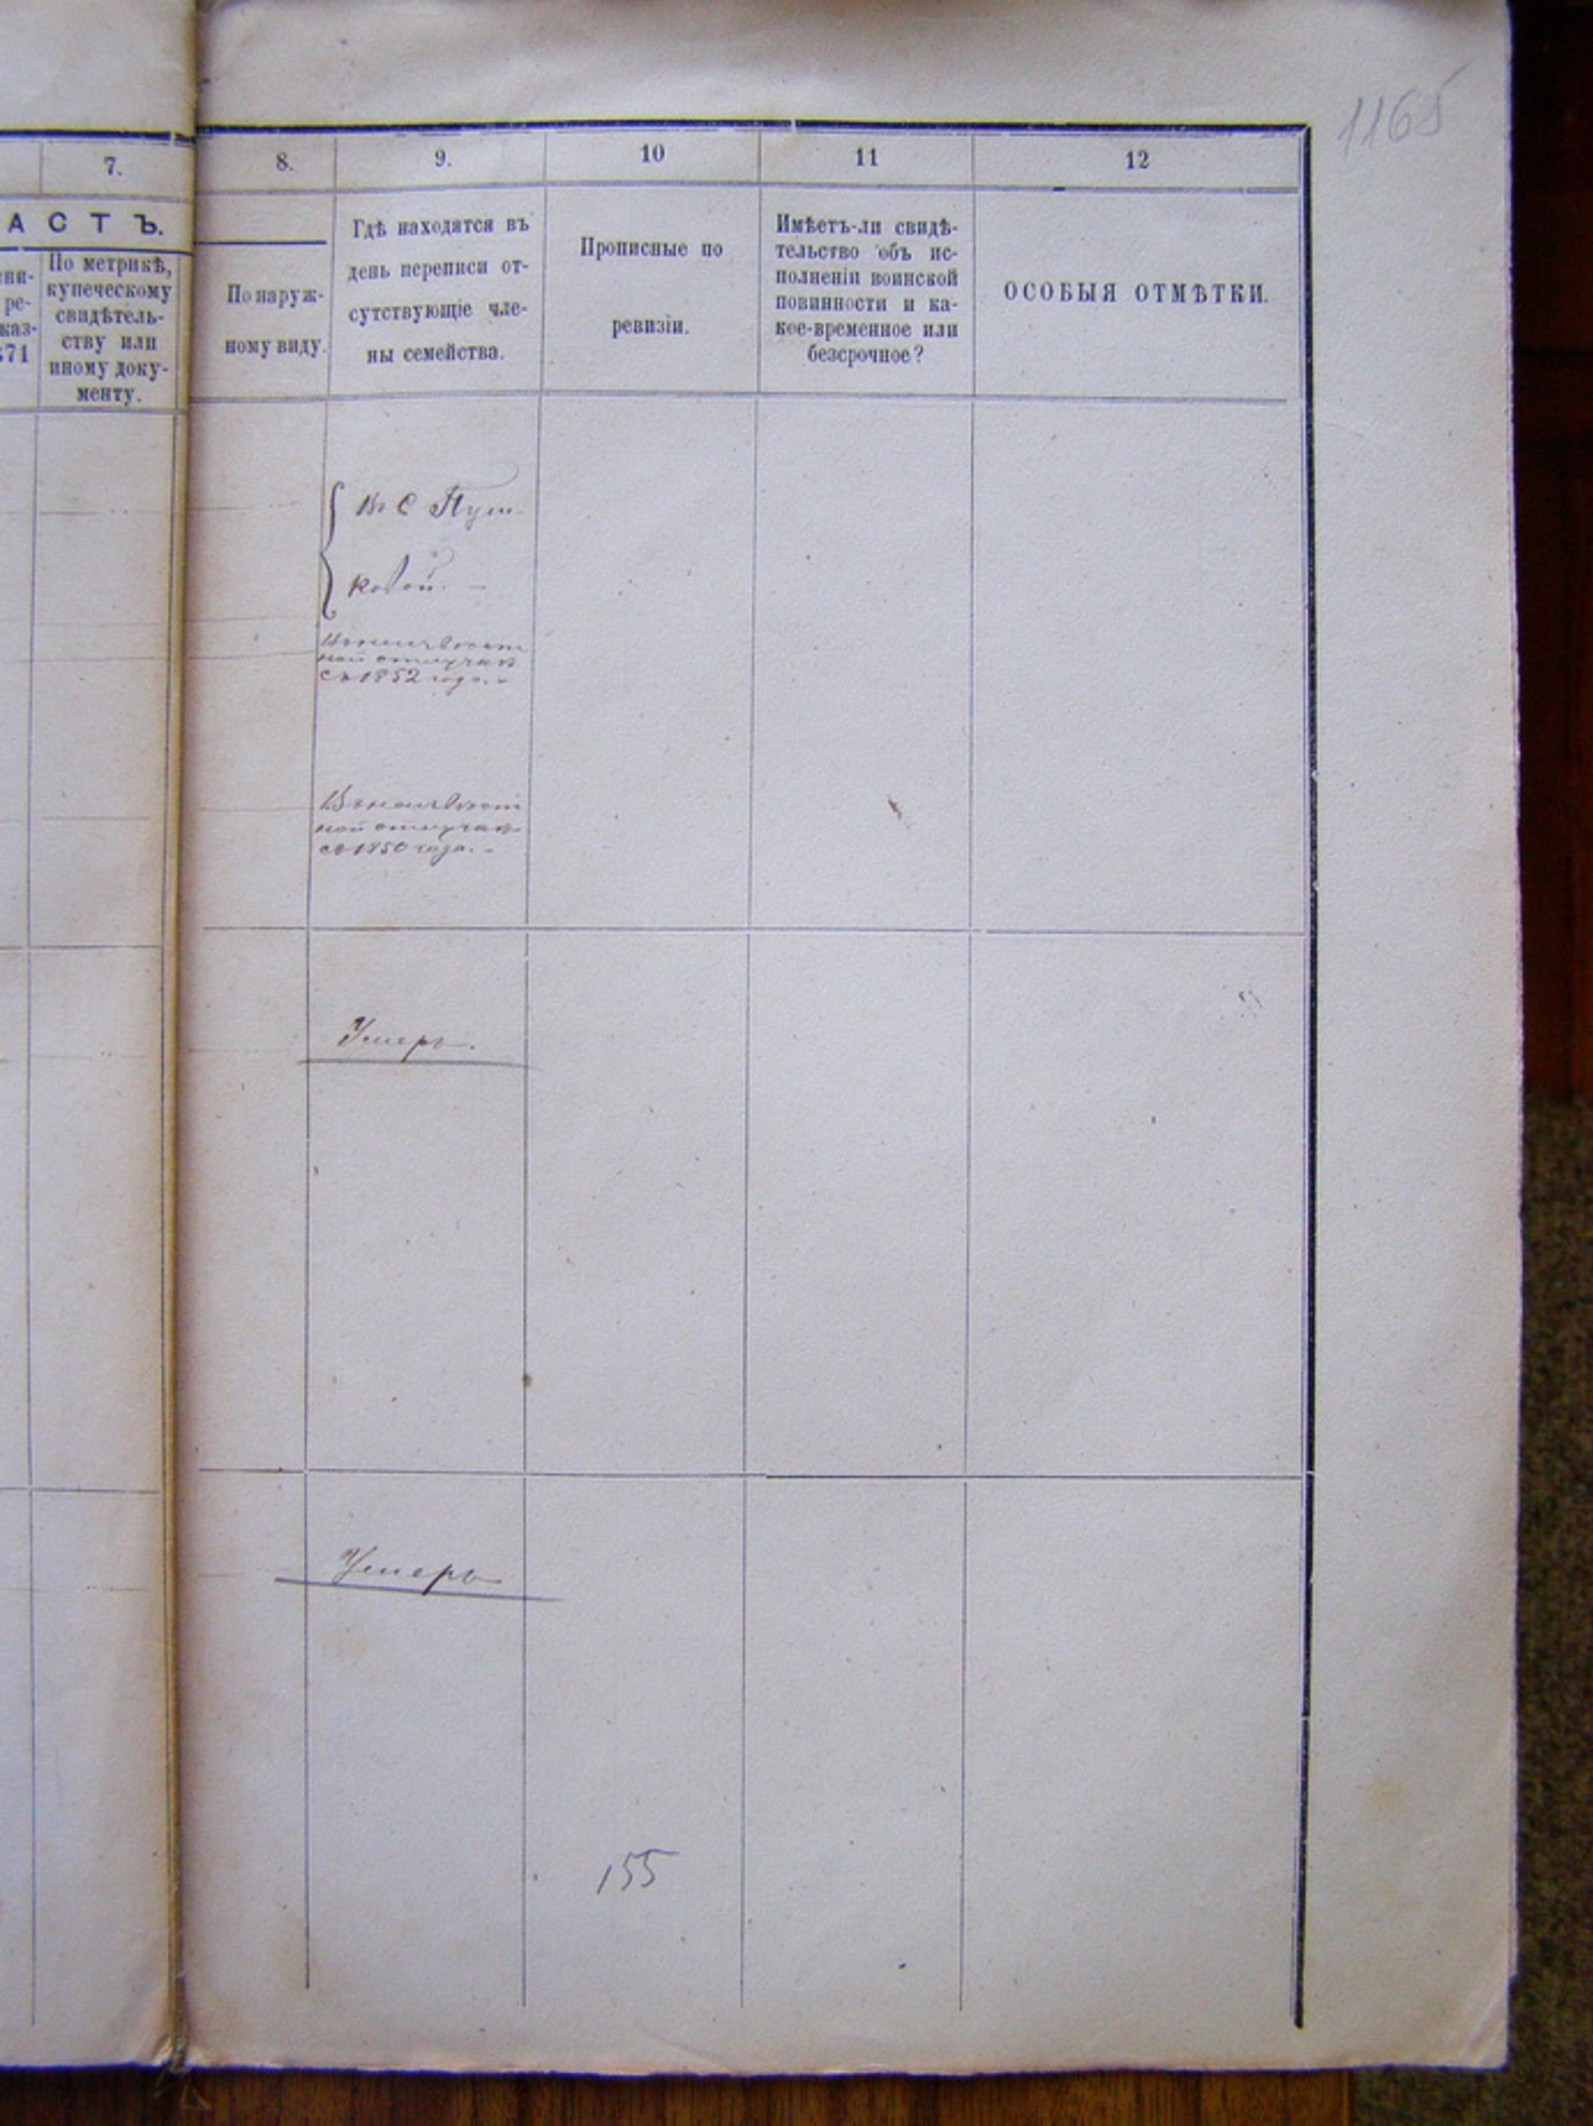 1165
7.
8.
9.
10
11
12
А С Т Ъ.
ни-
ре-
каз-
871
По метрикѣ,
купеческому
свидѣтель-
ству или
иному доку-
менту.
По наруж-
ному виду.
Гдѣ находятся въ
день переписи от-
сутствующіе чле-
ны семейства.
Прописные по
ревизіи.
Имѣетъ-ли свидѣ-
тельство объ ис-
полненіи воинской
повинности и ка-
кое-временное или
безсрочное?
ОСОБЫЯ ОТМѢТКИ.
Въ С Пуш-
ковой. —
Въ неизвѣст
ной отлучкѣ
съ 1852 года. -
Въ неизвѣст
ной отлучкѣ
съ 1850 года. -
Умеръ.
Умеръ
155